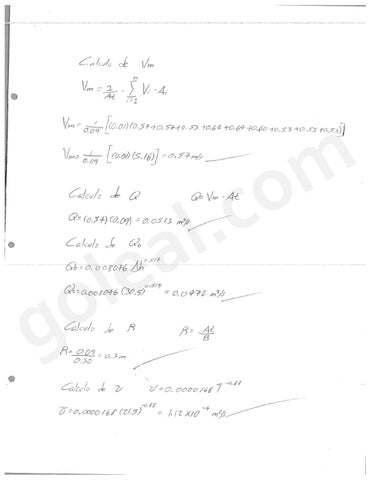 Calculo de Vm
Vm = 1/At · Σ Vi · Ai
Vm = 1/0.09 [(0.01)(0.57+0.57+0.53+0.67+0.67+0.60+0.53+0.53+0.53)]
Vm = 1/0.09 [(0.01)(5.16)] = 0.57 m/s
Calculo de Q Q = Vm · At
Q = (0.57)(0.09) = 0.0513 m³/s
Calculo de Qb
Qb = 0.008076 Δh
Qb = 0.008076 (30.5) = 0.0472 m³/s
Calculo de R R = At/B
R = 0.09/0.30 = 0.3 m
Calculo de υ υ = 0.0000168 T^-0.88
υ = 0.0000168 (21.5)^-0.88 = 1.12 x10^-6 m²/s
goleal.com